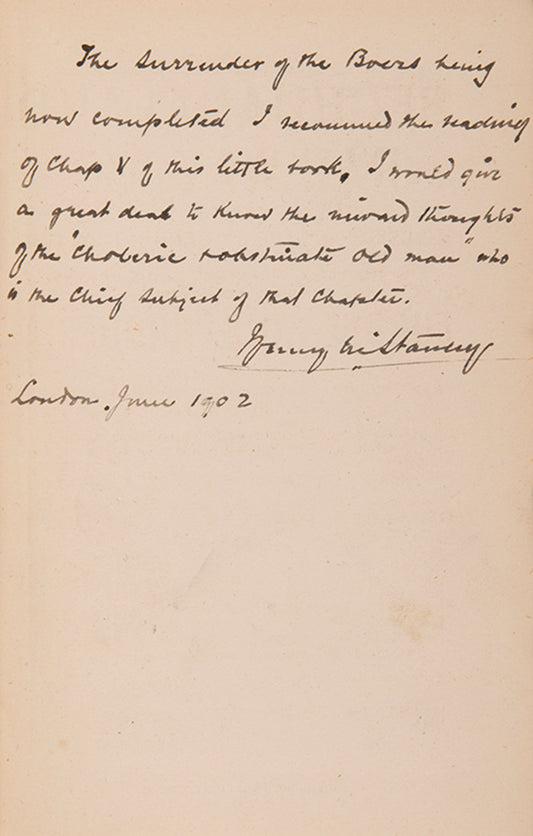 The Surrender of the Boers being
now completed I recommend the reading
of Chap V of this little book. I would give
a great deal to know the inward thoughts
of the "Choleric & obstinate old man" who
is the Chief Subject of that Chapter.
Henry M. Stanley
London, June 1902